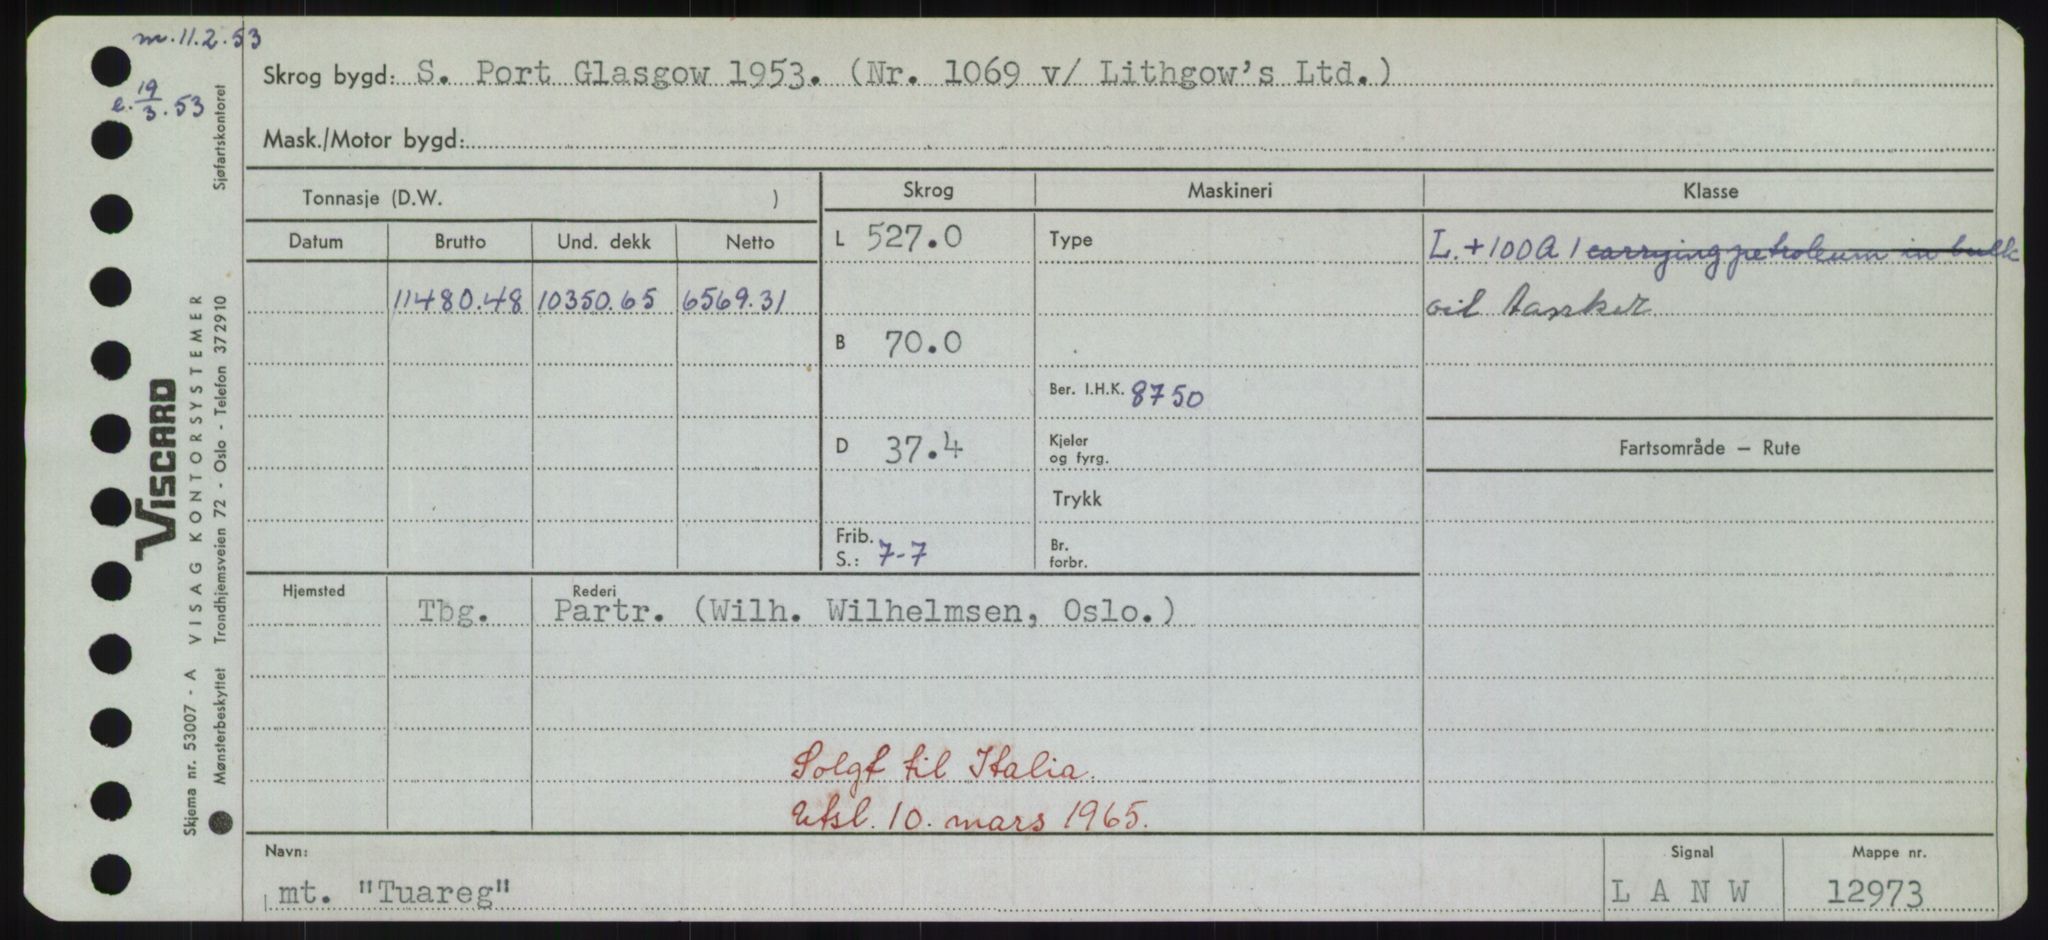 m. 11.2.53
e. 19/3.53
Sjøfartskontoret
VISCARD
VISAG KONTORSYSTEMER
Skjema nr. 53007 - A
Mønsterbeskyttet Trondhjemsveien 72 - Oslo - Telefon 372910
Skrog bygd: S. Port Glasgow 1953. (Nr. 1069 v/ Lithgow's Ltd.)
Mask./Motor bygd:
Tonnasje (D.W. )
Skrog Maskineri Klasse
Datum Brutto Und. dekk Netto
L 527.0 Type L. +100A1 carrying petroleum in bulk
11480.48 10350.65 6569.31 oil tanker
B 70.0
Ber. I.H.K. 8750
D 37.4 Kjeler og fyrg. Fartsområde – Rute
Trykk
Frib. S.: 7-7 Br. forbr.
Hjemsted Rederi
Tbg. Partr. (Wilh. Wilhelmsen, Oslo.)
Solgt til Italia.
Utsl. 10. mars 1965.
Navn: Signal Mappe nr.
mt. "Tuareg" L A N W 12973